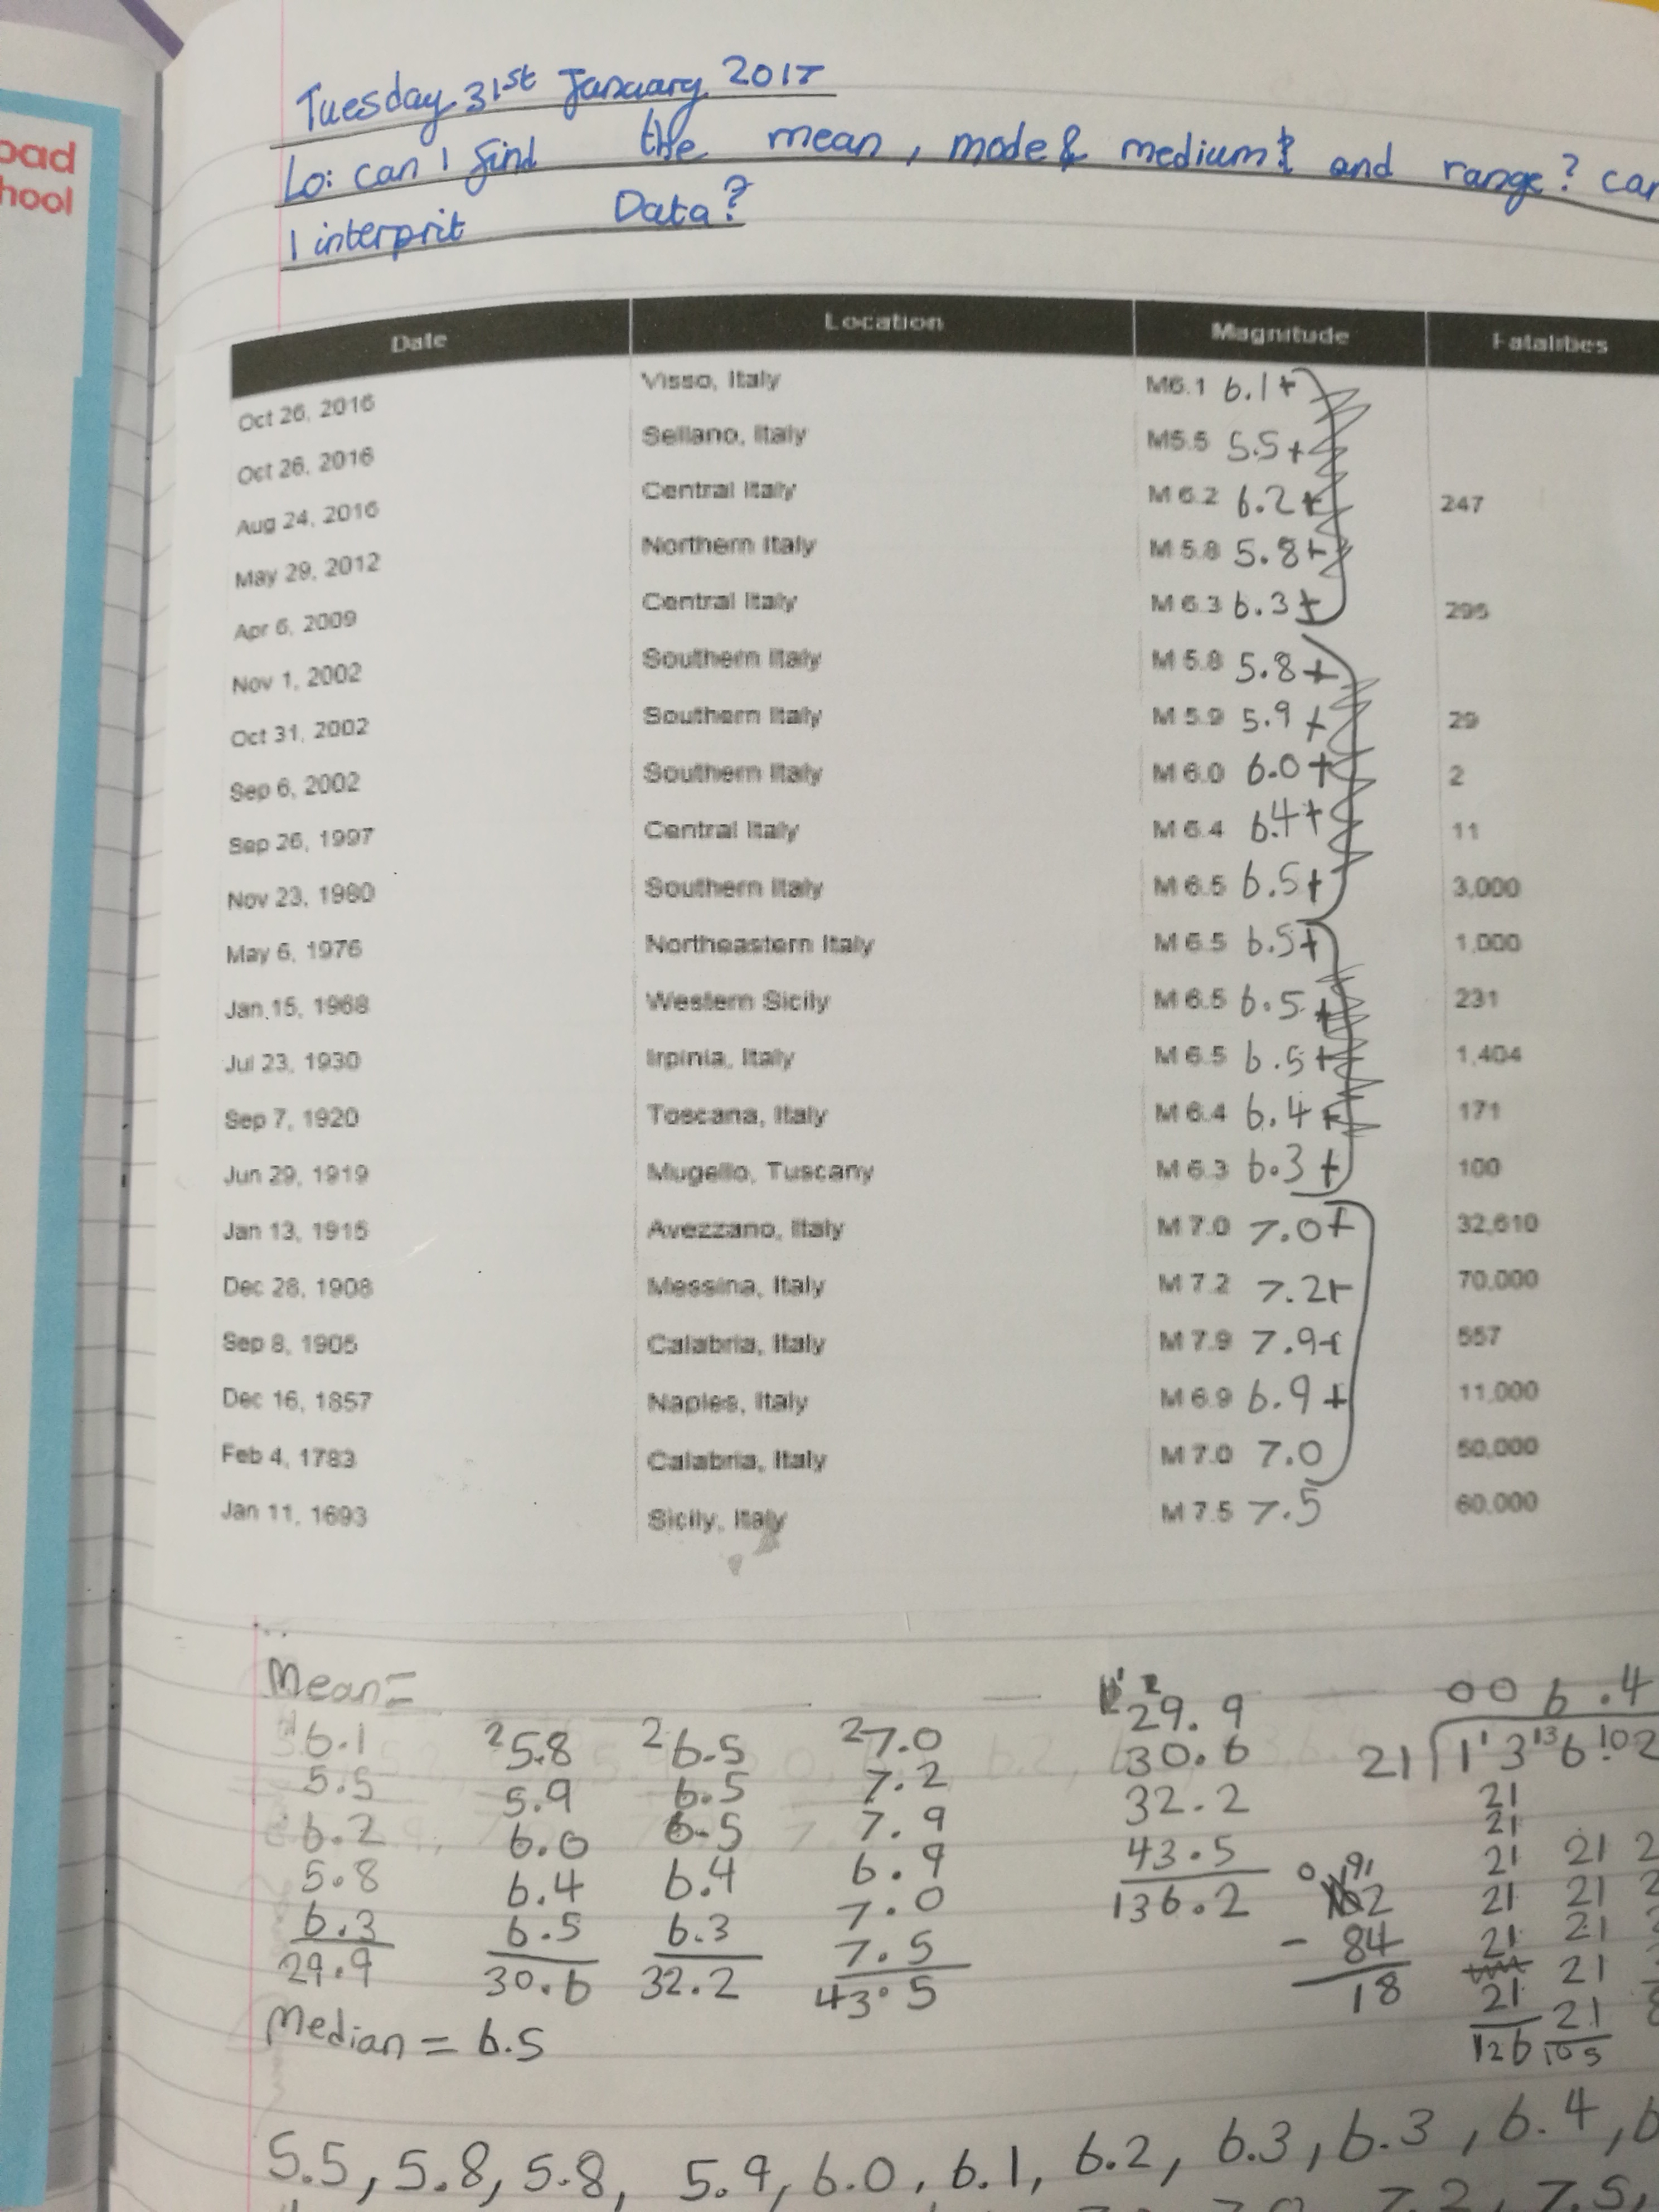 Tuesday 31st January 2017
Lo: can I find the mean, mode & medium & and range? can
I interprit Data?
oad
hool
Date Location Magnitude Fatalities
Oct 26, 2016 Visso, Italy M6.1 6.1+
Oct 26, 2016 Sellano, Italy M5.5 5.5+
Aug 24, 2016 Central Italy M 6.2 6.2+ 247
May 29, 2012 Northern Italy M 5.8 5.8+
Apr 6, 2009 Central Italy M 6.3 6.3+ 295
Nov 1, 2002 Southern Italy M 5.8 5.8+
Oct 31, 2002 Southern Italy M 5.9 5.9+ 29
Sep 6, 2002 Southern Italy M 6.0 6.0+ 2
Sep 26, 1997 Central Italy M 6.4 6.4+ 11
Nov 23, 1980 Southern Italy M 6.5 6.5+ 3,000
May 6, 1976 Northeastern Italy M 6.5 6.5+ 1,000
Jan 15, 1968 Western Sicily M 6.5 6.5+ 231
Jul 23, 1930 Irpinia, Italy M 6.5 6.5+ 1,404
Sep 7, 1920 Toscana, Italy M 6.4 6.4+ 171
Jun 29, 1919 Mugello, Tuscany M 6.3 6.3+ 100
Jan 13, 1915 Avezzano, Italy M 7.0 7.0+ 32,610
Dec 28, 1908 Messina, Italy M 7.2 7.2+ 70,000
Sep 8, 1905 Calabria, Italy M 7.9 7.9+ 557
Dec 16, 1857 Naples, Italy M 6.9 6.9+ 11,000
Feb 4, 1783 Calabria, Italy M 7.0 7.0 50,000
Jan 11, 1693 Sicily, Italy M 7.5 7.5 60,000
Mean=
6.1 5.8 6.5 7.0 29.9 006.4
5.5 5.9 6.5 7.2 30.6 21 1 3 6.02
6.2 6.0 6.5 7.9 32.2 21
5.8 6.4 6.4 6.9 43.5 21 21
6.3 6.5 6.3 7.0 136.2 21 21
29.9 30.6 32.2 7.5 - 84 21 21
43.5 18 21 21
126 105
Median = 6.5
5.5, 5.8, 5.8, 5.9, 6.0, 6.1, 6.2, 6.3, 6.3, 6.4, 6
7.2, 7.5,